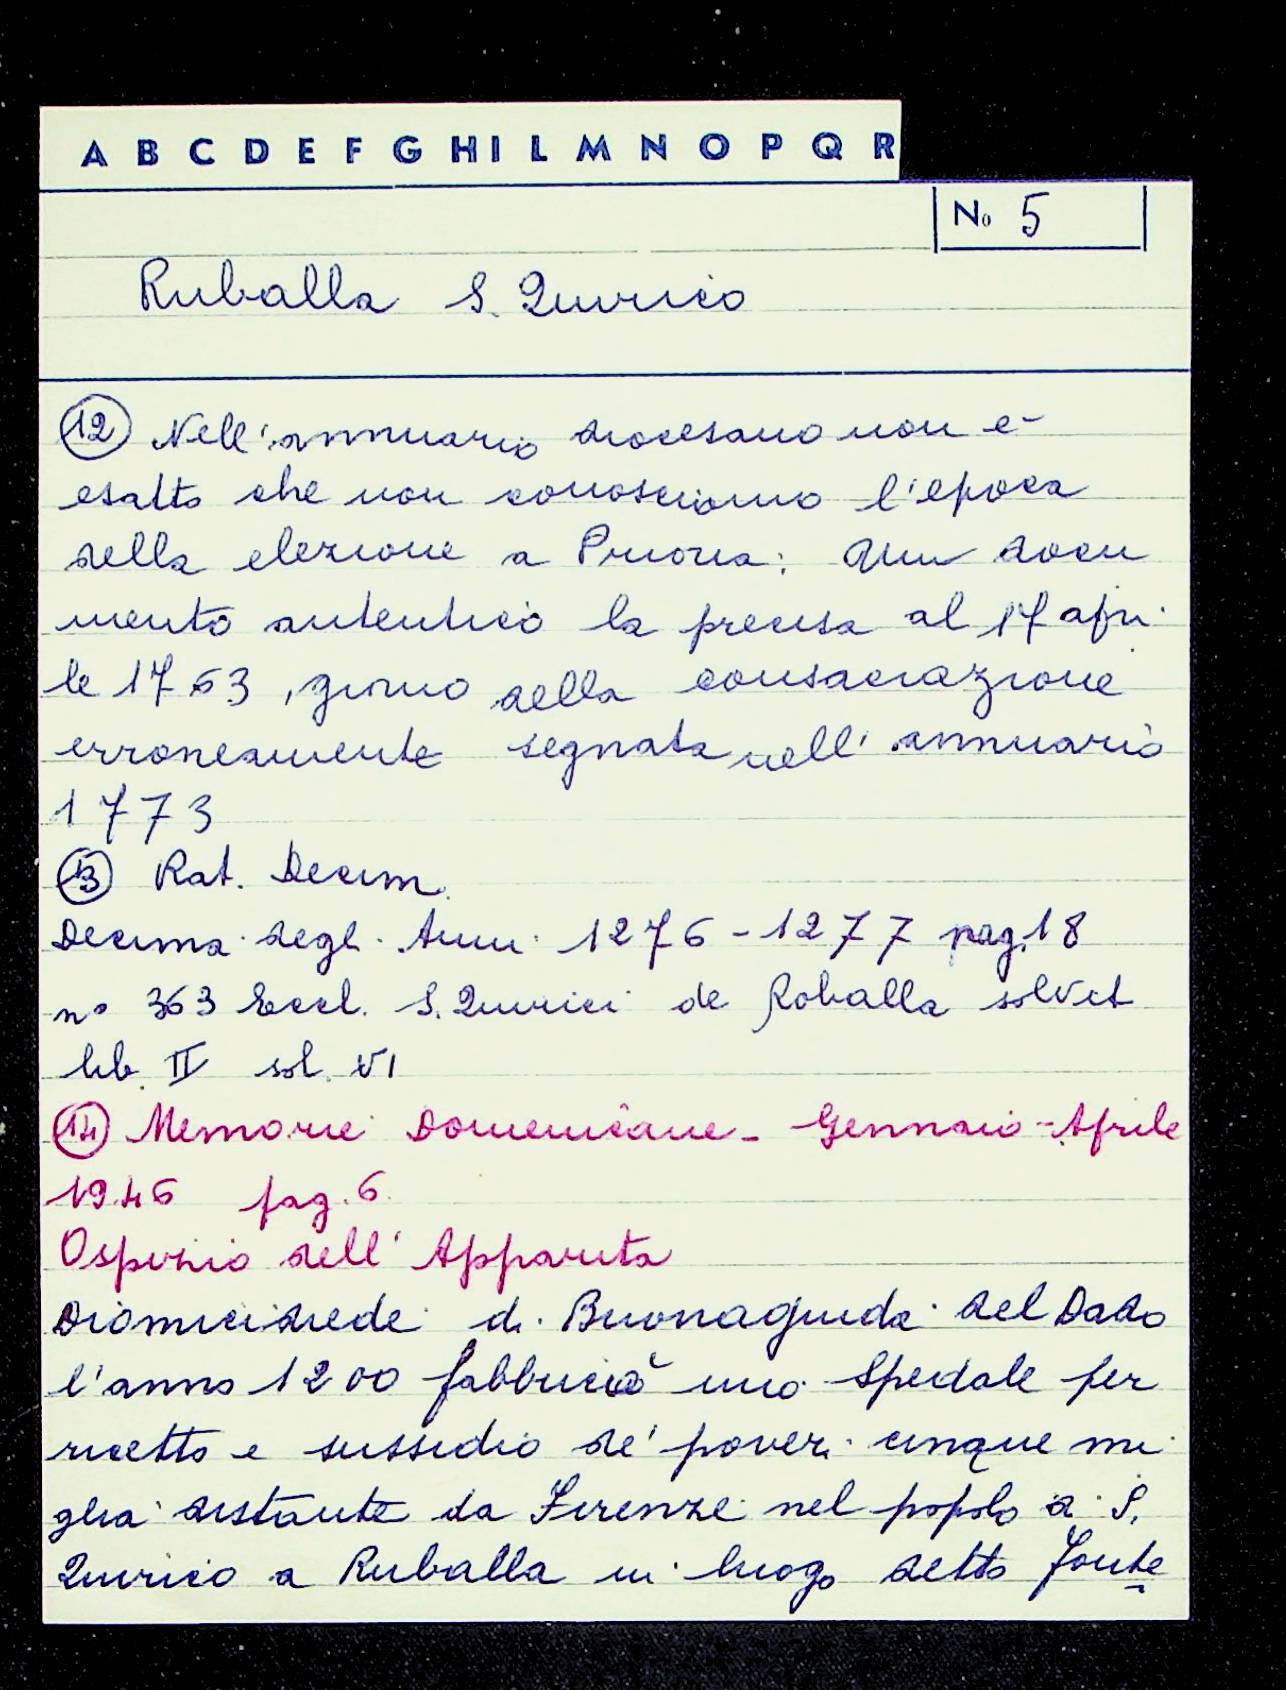 A B C D E F G H I L M N O P Q R
No 5
Ruballa S. Quirico
12 Nell'annuario diocesano non è
esatto che non conosciamo l'epoca
della elezione a Prioria: Un docu
mento autentico la precisa al 17 apri
le 1763, giorno della consacrazione
erroneamente segnata nell'annuario
1773
13 Rat. Decim.
Decima degl. Ann. 1276-1277 pag. 18
no 363 Eccl. S. Quirici de Roballa solvit
lib. II sol. VI
14 Memorie Domenicane - Gennaio - Aprile
1946 pag. 6
Ospizio dell'Apparita
Diomiciediede di Buonaguida del Dado
l'anno 1200 fabbricò uno spedale per
ricetto e sussidio de' poveri cinque mi
glia distante da Firenze nel popolo a S.
Quirico a Ruballa in luogo detto Fonte